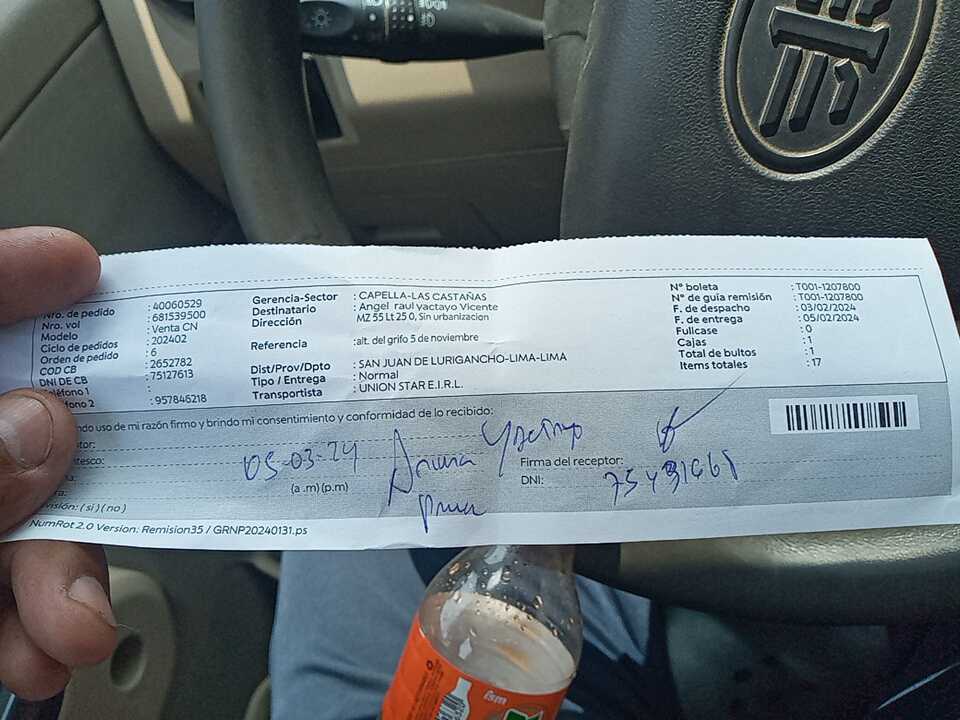 Nro. de pedido : 40060529
Nro. vol : 681539500
Modelo : Venta CN
Ciclo de pedidos : 202402
Orden de pedido : 6
COD CB : 2652782
DNI DE CB : 75127613
léfono 1
fono 2 : 957846218
Gerencia-Sector : CAPELLA-LAS CASTAÑAS
Destinatario : Angel raul yactayo Vicente
Dirección MZ 55 Lt 25 0, Sin urbanizacion
Referencia : alt. del grifo 5 de noviembre
Dist/Prov/Dpto : SAN JUAN DE LURIGANCHO-LIMA-LIMA
Tipo / Entrega : Normal
Transportista : UNION STAR E.I.R.L.
N° boleta : T001-1207800
N° de guía remisión : T001-1207800
F. de despacho : 03/02/2024
F. de entrega : 05/02/2024
Fullcase : 0
Cajas : 1
Total de bultos : 1
Items totales : 17
ndo uso de mi razón firmo y brindo mi consentimiento y conformidad de lo recibido:
tor:
ntesco:
05-03-24
(a .m) (p.m)
Firma del receptor:
DNI:
visión: ( si ) ( no )
NumRot 2.0 Version: Remision35 / GRNP20240131.ps